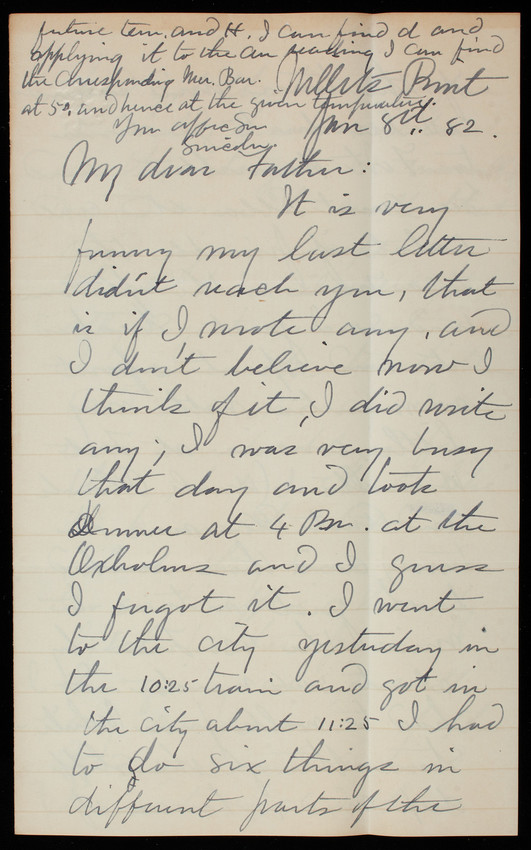 future tem. and H. I can find d and
applying it to the Au reading I can find
the Corresponding Mer. Bar.
at 50, and hence at the given temperature.
Your affec Son
Willets Point
Jan 8th. 82.
My dear Father:
It is very
funny my last letter
didn't reach you, that
is if I wrote any, and
I don't believe now I
think of it, I did write
any; I was very busy
that day and took
dinner at 4 Pm. at the
Oxholms and I guess
I forgot it. I went
to the city yesterday in
the 10:25 train and got in
the city about 11:25 I had
to do six things in
different parts of the